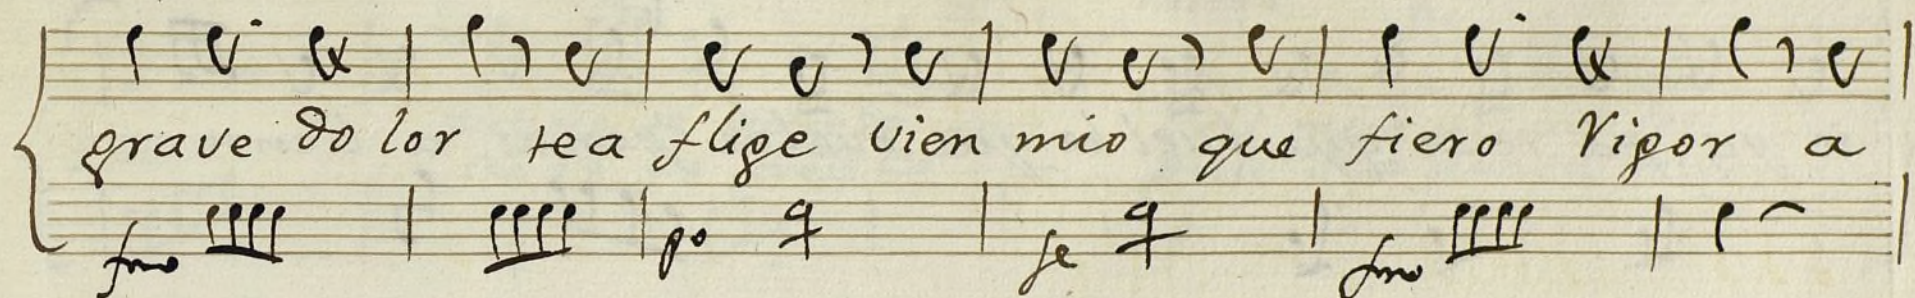 grave do lor tea flige vien mio que fiero Rigor a
fmo po fe fmo